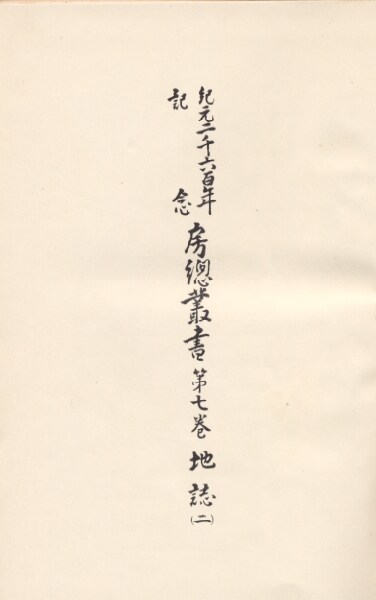 紀元二千六百年
記念
房總叢書 第七卷 地誌(二)